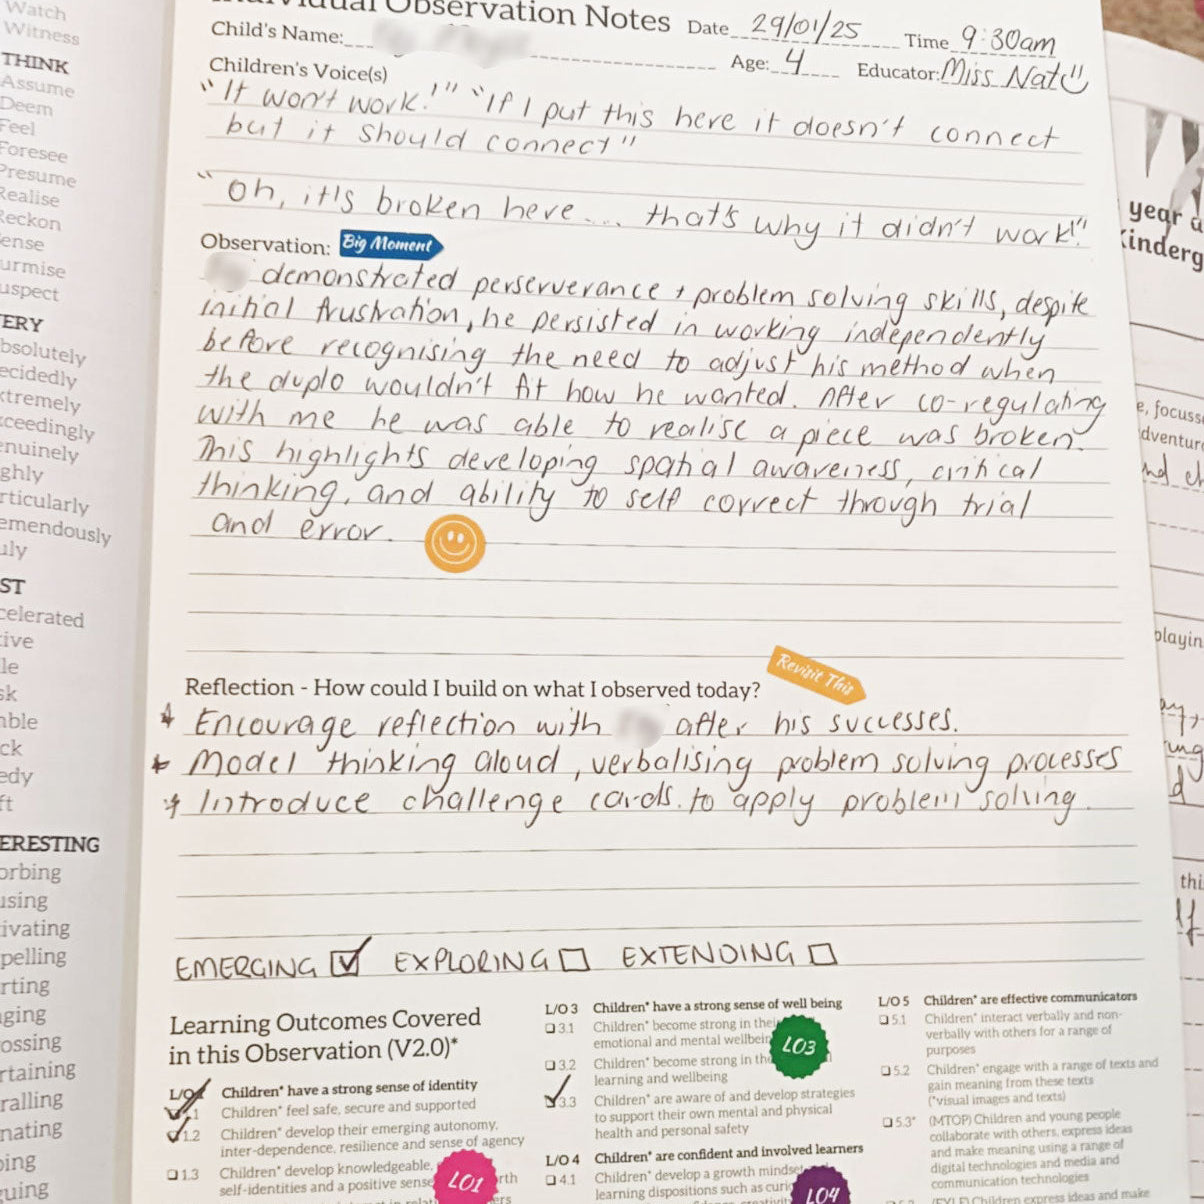 Watch
Witness
THINK
Assume
Deem
Feel
Foresee
Presume
Realise
Reckon
ense
urmise
uspect
ERY
bsolutely
ecidedly
xtremely
xceedingly
enuinely
ghly
rticularly
emendously
uly
ST
celerated
tive
le
sk
mble
ck
edy
ft
ERESTING
orbing
using
ivating
pelling
rting
ging
ossing
rtaining
ralling
nating
ping
guing
Observation Notes Date 29/01/25 Time 9:30am
Child's Name:
Age: 4 Educator: Miss Nat
Children's Voice(s)
"It won't work!" "If I put this here it doesn't connect
but it should connect"
"oh, it's broken here... that's why it didn't work!"
Observation: Big Moment
demonstrated perserverance + problem solving skills, despite
initial frustration, he persisted in working independently
before recognising the need to adjust his method when
the duplo wouldn't fit how he wanted. After co-regulating
with me he was able to realise a piece was broken.
This highlights developing spatial awareness, critical
thinking, and ability to self correct through trial
and error.
Revisit This
Reflection - How could I build on what I observed today?
* Encourage reflection with after his successes.
* Model thinking aloud, verbalising problem solving processes
* Introduce challenge cards. to apply problem solving.
EMERGING ☑ EXPLORING ☐ EXTENDING ☐
Learning Outcomes Covered
in this Observation (V2.0)*
L/O1 Children* have a strong sense of identity
1.1 Children* feel safe, secure and supported
1.2 Children* develop their emerging autonomy,
inter-dependence, resilience and sense of agency
1.3 Children* develop knowledgeable,
self-identities and a positive sense rth
LO1
L/O 3 Children* have a strong sense of well being
3.1 Children* become strong in their
emotional and mental wellbein
LO3
3.2 Children* become strong in the
learning and wellbeing
3.3 Children are aware of and develop strategies
to support their own mental and physical
health and personal safety
L/O 4 Children* are confident and involved learners
4.1 Children* develop a growth mindset
learning dispositions such as curi
LO4
L/O 5 Children* are effective communicators
5.1 Children* interact verbally and non-
verbally with others for a range of
purposes
5.2 Children* engage with a range of texts and
gain meaning from these texts
(*visual images and texts)
5.3* (MTOP) Children and young people
collaborate with others, express ideas
and make meaning using a range of
digital technologies and media and
communication technologies
(EYLF) Children express ideas and make
year
Kinderg
e, focuss
dventur
playin
thi